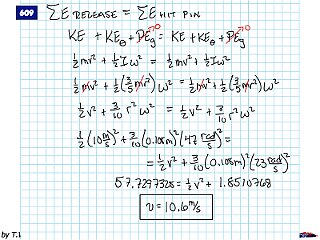 609 ΣE RELEASE = ΣE HIT PIN
KE + KEθ + PEg→0 = KE + KEθ + PEg→0
½mv² + ½Iω² = ½mv² + ½Iω²
½mv² + ½(3/5mr²)ω² = ½mv² + ½(3/5mr²)ω²
½v² + 3/10 r²ω² = ½v² + 3/10 r²ω²
½(10 m/s)² + 3/10(0.108m)²(47 rad/s)² =
= ½v² + 3/10(0.108m)²(23 rad/s)²
57.7297328 = ½v² + 1.8510768
v = 10.6 m/s
by T.J.